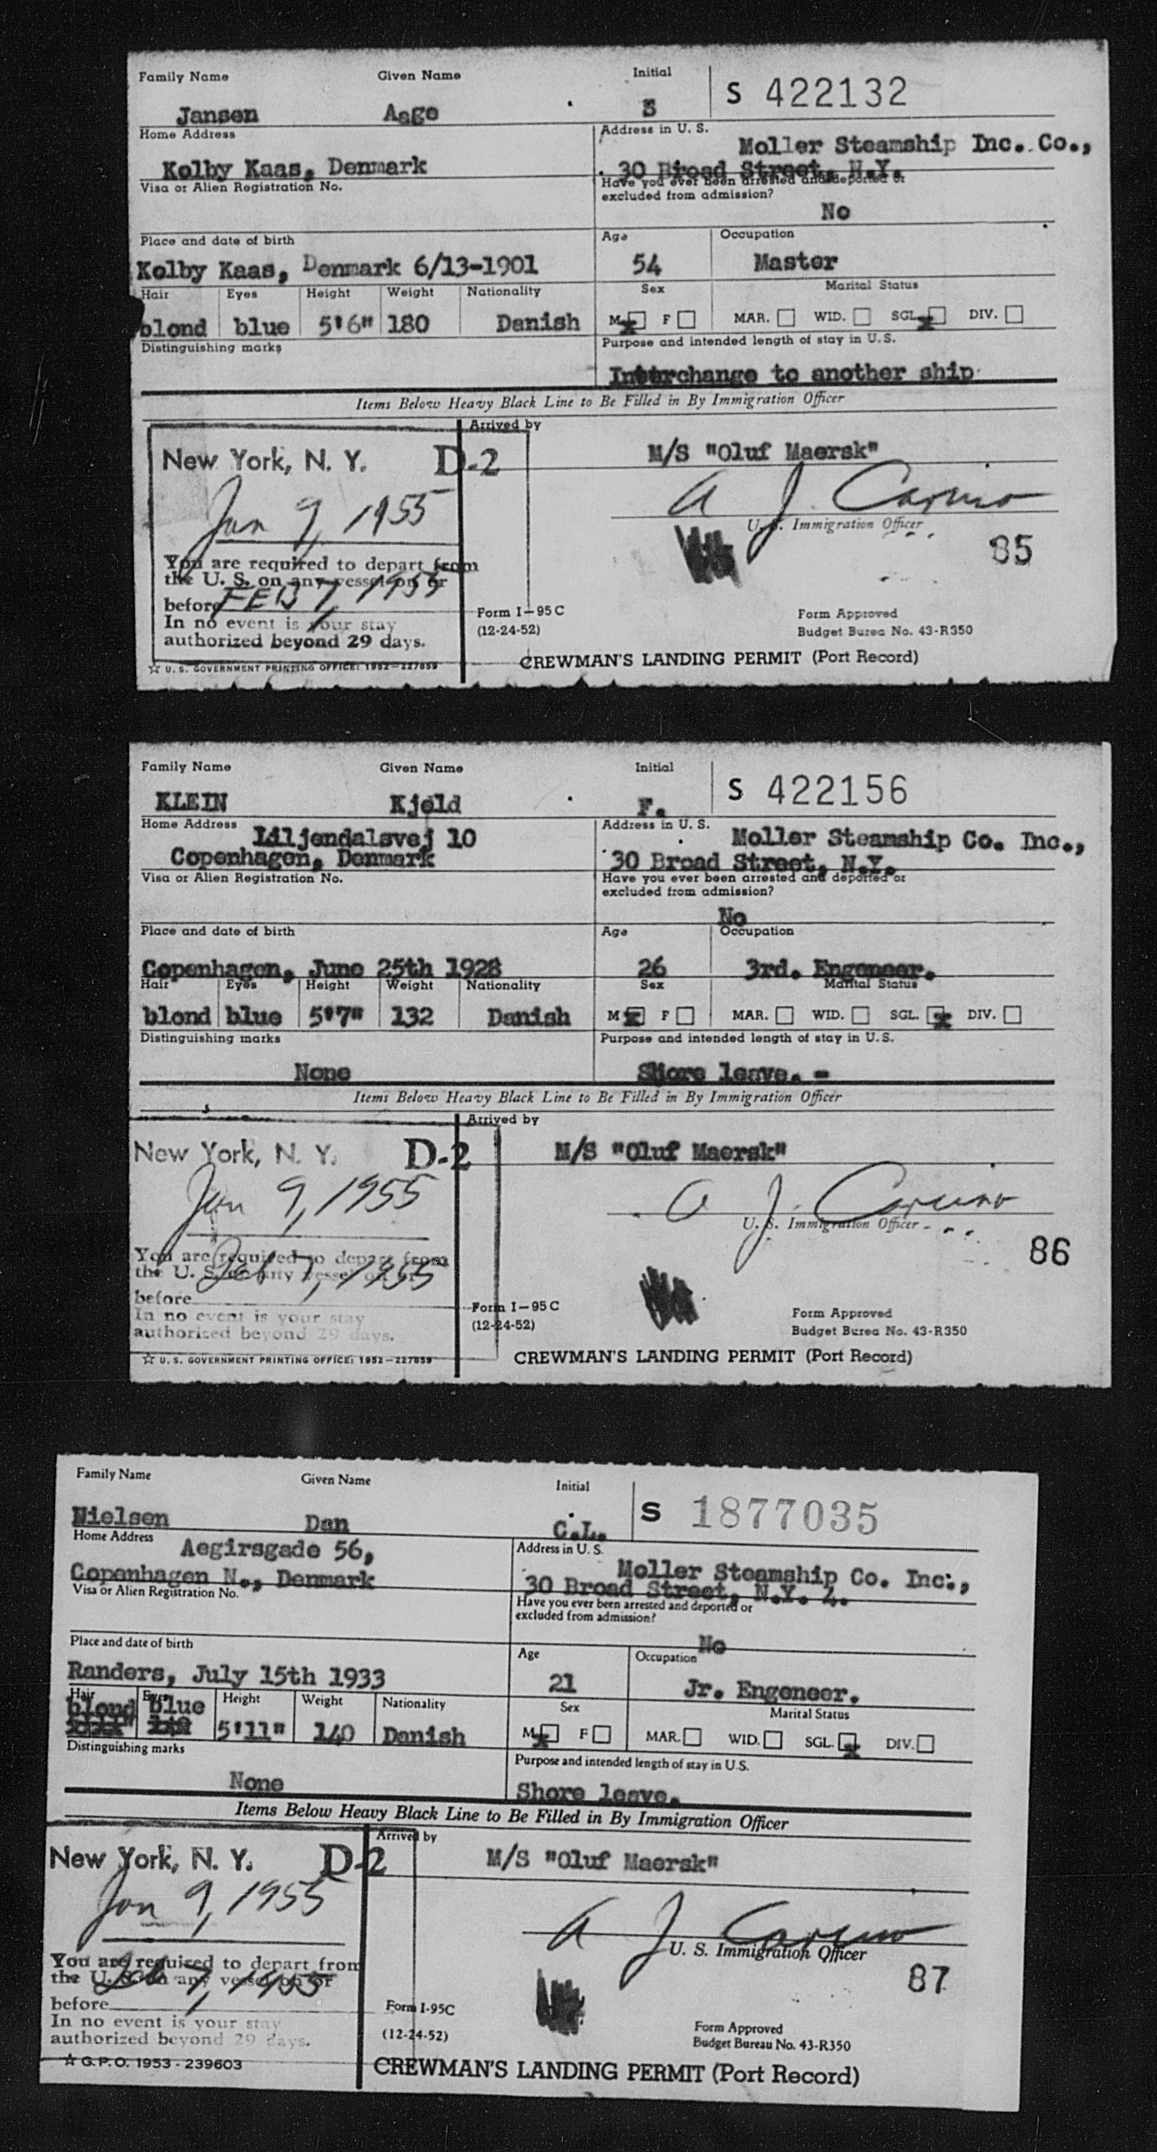 Family Name Given Name Initial S 422132
Jansen Aage S
Home Address Address in U. S.
Moller Steamship Inc. Co.,
Kolby Kaas, Denmark 30 Broad Street, N.Y.
Visa or Alien Registration No. Have you ever been arrested and deported or
excluded from admission?
No
Place and date of birth Age Occupation
Kolby Kaas, Denmark 6/13-1901 54 Master
Hair Eyes Height Weight Nationality Sex Marital Status
blond blue 5'6" 180 Danish M x F MAR. WID. SGL. x DIV.
Distinguishing marks Purpose and intended length of stay in U.S.
Interchange to another ship
Items Below Heavy Black Line to Be Filled in By Immigration Officer
Arrived by
New York, N. Y. D-2 M/S "Oluf Maersk"
Jan 9, 1955 A J. Caruso
U. S. Immigration Officer
85
You are required to depart from
the U. S. on any vessel on or
before FEB 7, 1955
In no event is your stay
authorized beyond 29 days.
Form I-95C
(12-24-52)
Form Approved
Budget Burea No. 43-R350
☆ U. S. GOVERNMENT PRINTING OFFICE: 1952—227859
CREWMAN'S LANDING PERMIT (Port Record)
Family Name Given Name Initial S 422156
KLEIN Kjeld F.
Home Address Address in U. S.
Liljendalsvej 10 Moller Steamship Co. Inc.,
Copenhagen, Denmark 30 Broad Street, N.Y.
Visa or Alien Registration No. Have you ever been arrested and deported or
excluded from admission?
No
Place and date of birth Age Occupation
Copenhagen, June 25th 1928 26 3rd. Engeneer.
Hair Eyes Height Weight Nationality Sex Marital Status
blond blue 5'7" 132 Danish M x F MAR. WID. SGL. x DIV.
Distinguishing marks Purpose and intended length of stay in U.S.
None Shore leave. -
Items Below Heavy Black Line to Be Filled in By Immigration Officer
Arrived by
New York, N. Y. D-2 M/S "Oluf Maersk"
Jan 9, 1955 A J. Caruso
U. S. Immigration Officer
86
You are required to depart from
the U. S. on any vessel on or
Feb 7, 1955
before
In no event is your stay
authorized beyond 29 days.
Form I-95C
(12-24-52)
Form Approved
Budget Burea No. 43-R350
☆ U. S. GOVERNMENT PRINTING OFFICE: 1952—227859
CREWMAN'S LANDING PERMIT (Port Record)
Family Name Given Name Initial S 1877035
Nielsen Dan C.L.
Home Address Address in U. S.
Aegirsgade 56, Moller Steamship Co. Inc.,
Copenhagen N., Denmark 30 Broad Street, N.Y. 4.
Visa or Alien Registration No. Have you ever been arrested and deported or
excluded from admission?
No
Place and date of birth Age Occupation
Randers, July 15th 1933 21 Jr. Engeneer.
Hair Eyes Height Weight Nationality Sex Marital Status
blond blue 5'11" 140 Danish M x F MAR. WID. SGL. x DIV.
Distinguishing marks Purpose and intended length of stay in U.S.
None Shore leave.
Items Below Heavy Black Line to Be Filled in By Immigration Officer
Arrived by
New York, N. Y. D-2 M/S "Oluf Maersk"
Jan 9, 1955 A J. Caruso
U. S. Immigration Officer
87
You are required to depart from
the U. S. on any vessel on or
Feb 7, 1955
before
In no event is your stay
authorized beyond 29 days.
Form I-95C
(12-24-52)
Form Approved
Budget Bureau No. 43-R350
☆ G.P.O. 1953 - 239603
CREWMAN'S LANDING PERMIT (Port Record)